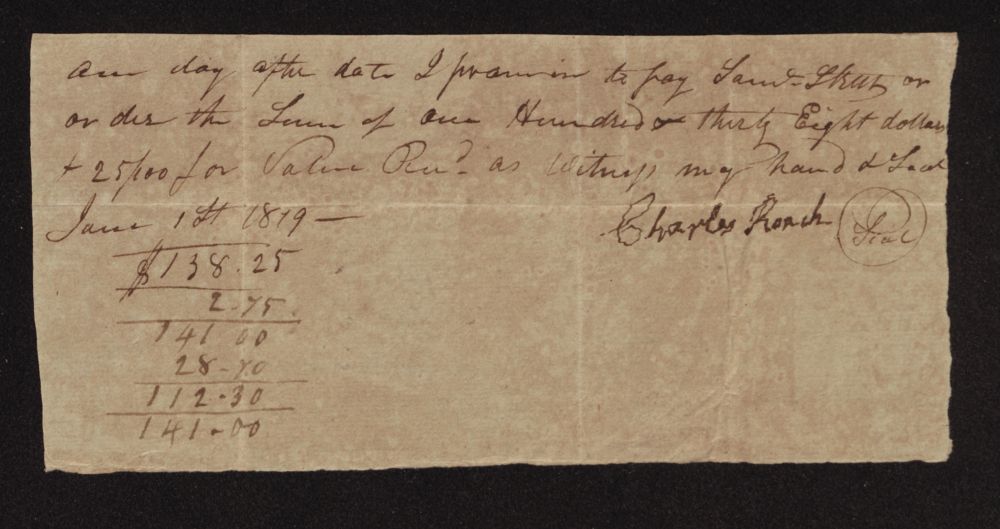 one day after date I promise to pay Saml Skeen or
order the Sum of one Hundred & thirty Eight dollars
& 25/100 for Value Recd as Witness my hand & Seal
June 1st 1819 —
Charles Roach Seal
$138.25
2-75
141 00
28-70
112-30
141-00